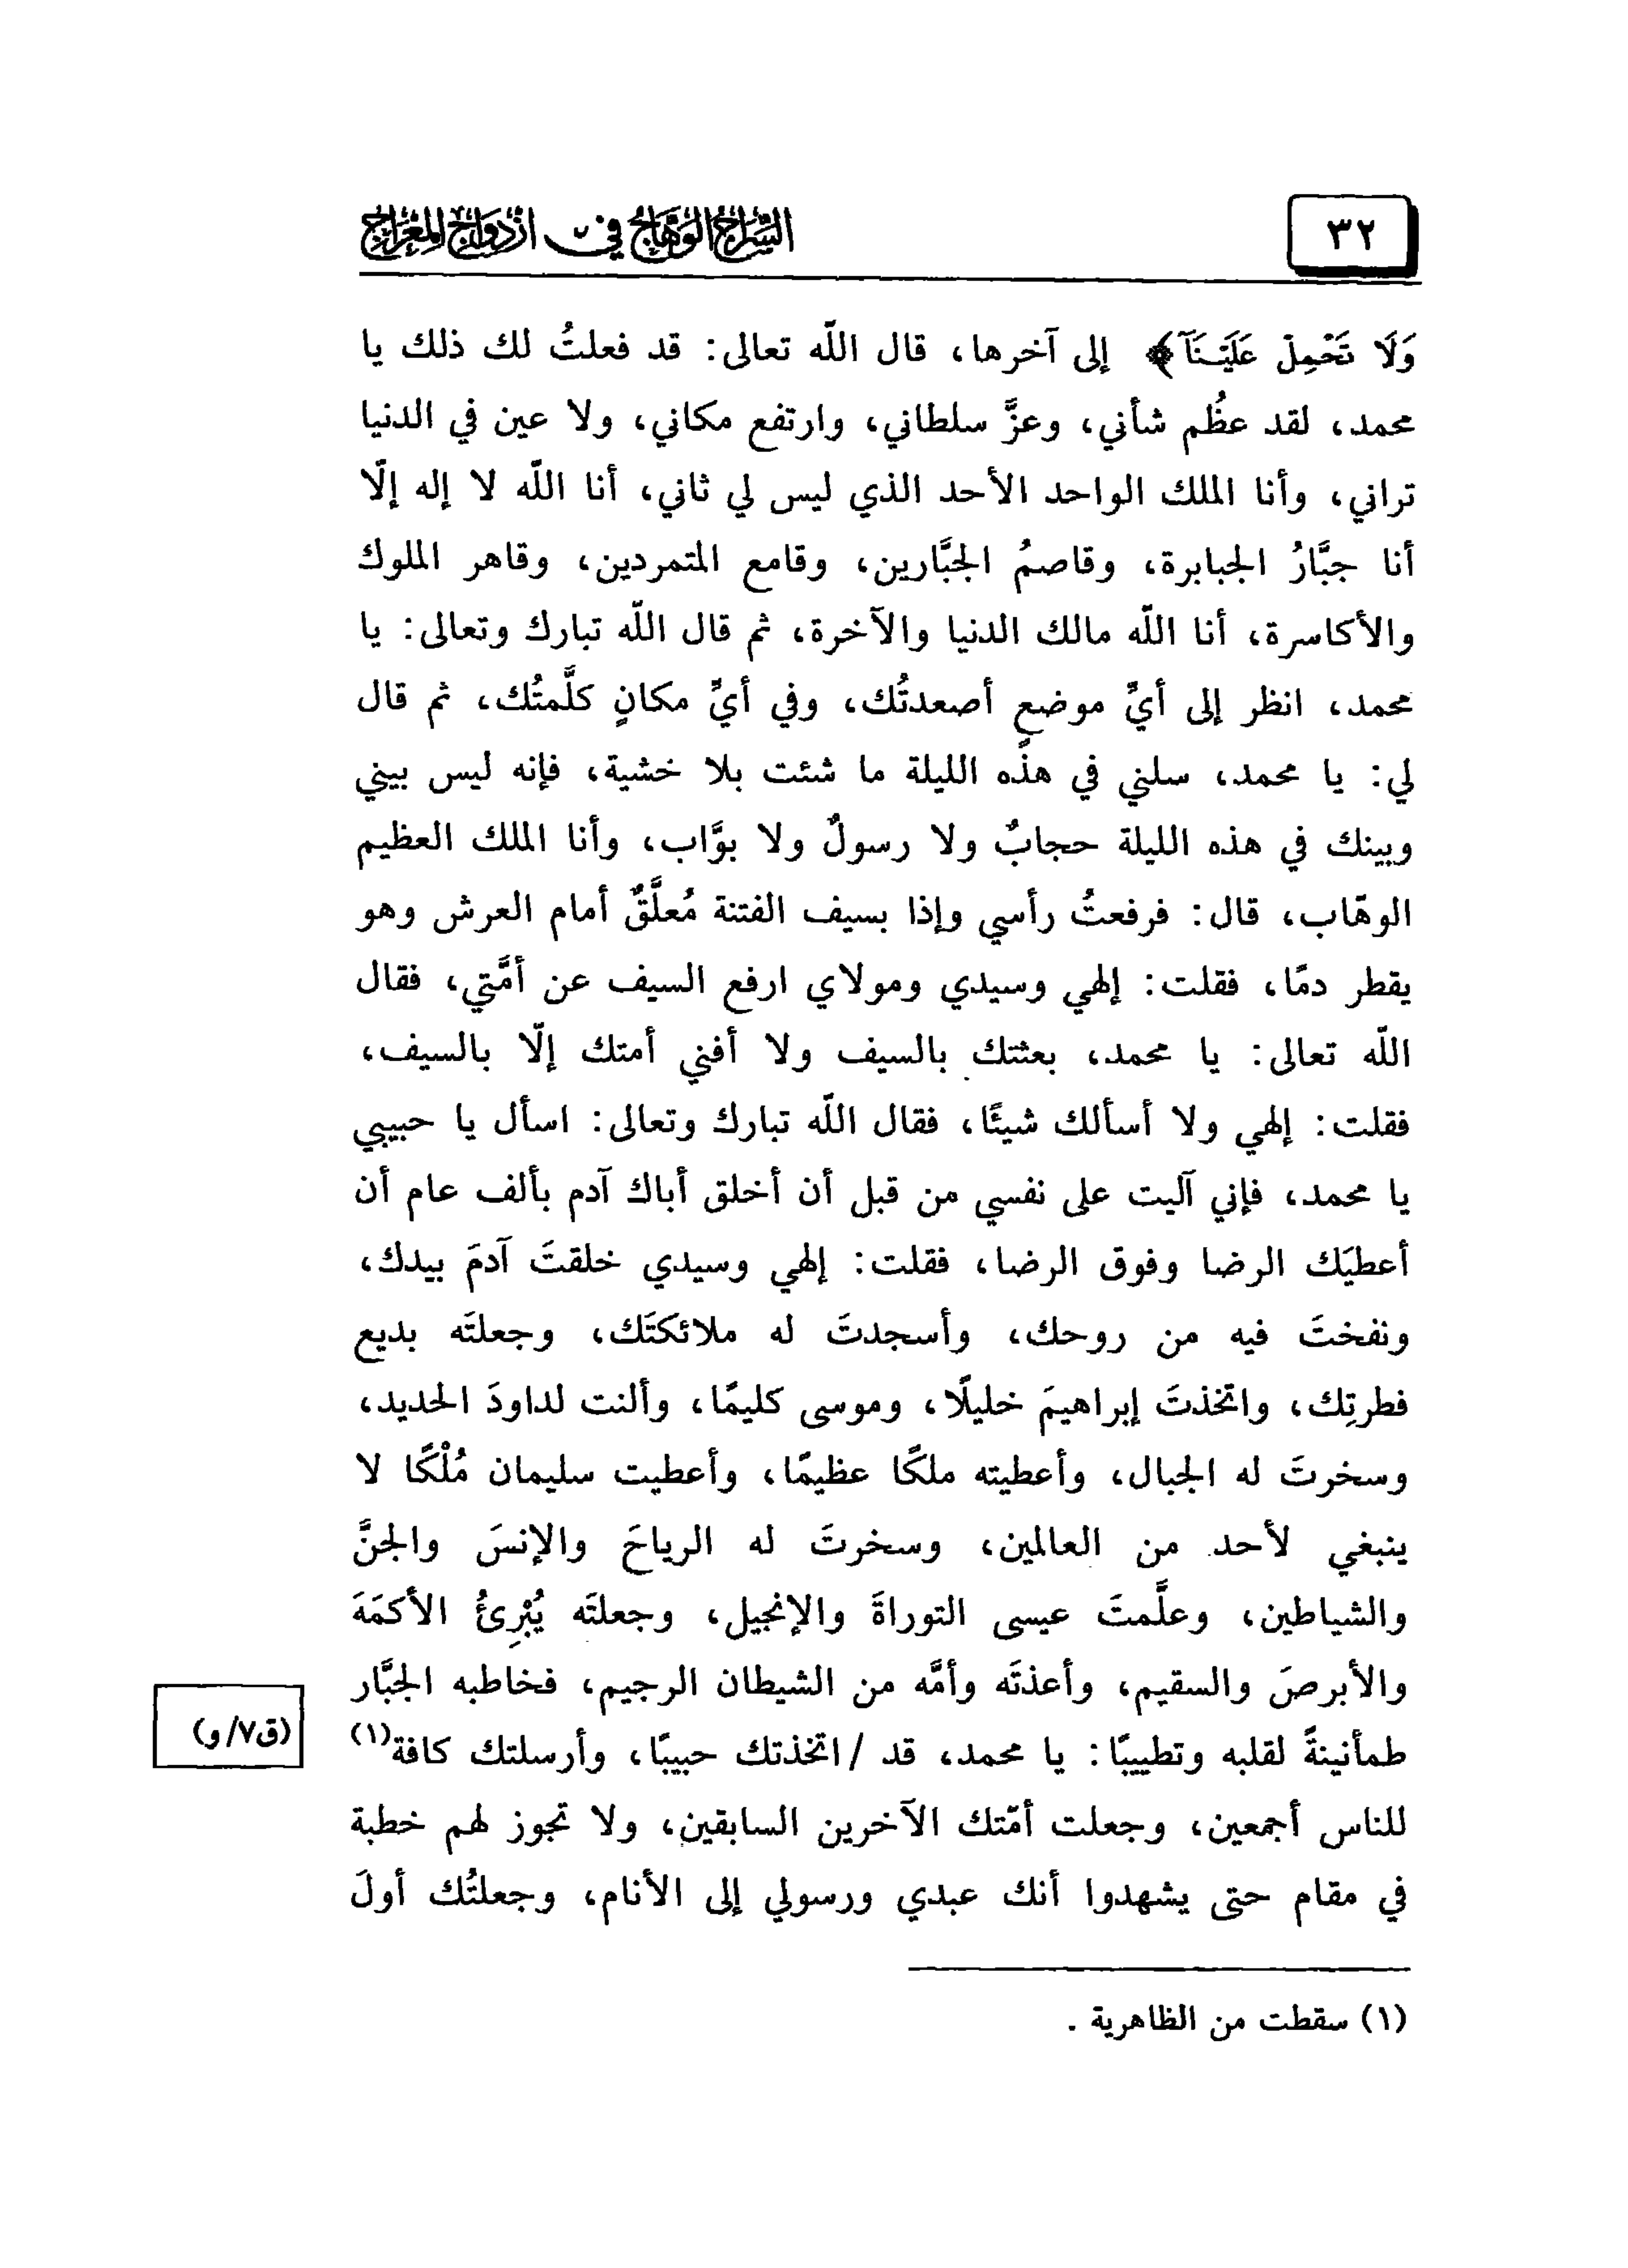 ٣٢
السراج الوهاج في ازدواج المعراج
وَلَا تَحْمِلْ عَلَيْنَآ﴾ إلى آخرها، قال اللّه تعالى: قد فعلتُ لك ذلك يا
محمد، لقد عظُم شأني، وعزَّ سلطاني، وارتفع مكاني، ولا عين في الدنيا
تراني، وأنا الملك الواحد الأحد الذي ليس لي ثاني، أنا اللّه لا إله إلّا
أنا جبَّارُ الجبابرة، وقاصمُ الجبَّارين، وقامع المتمردين، وقاهر الملوك
والأكاسرة، أنا اللّه مالك الدنيا والآخرة، ثم قال اللّه تبارك وتعالى: يا
محمد، انظر إلى أيِّ موضعٍ أصعدتُك، وفي أيِّ مكانٍ كلَّمتُك، ثم قال
لي: يا محمد، سلني في هذه الليلة ما شئت بلا خشية، فإنه ليس بيني
وبينك في هذه الليلة حجابٌ ولا رسولٌ ولا بوَّاب، وأنا الملك العظيم
الوهّاب، قال: فرفعتُ رأسي وإذا بسيف الفتنة مُعلَّقٌ أمام العرش وهو
يقطر دمًا، فقلت: إلهي وسيدي ومولاي ارفع السيف عن أمَّتي، فقال
اللّه تعالى: يا محمد، بعثتك بالسيف ولا أفني أمتك إلّا بالسيف،
فقلت: إلهي ولا أسألك شيئًا، فقال اللّه تبارك وتعالى: اسأل يا حبيبي
يا محمد، فإني آليت على نفسي من قبل أن أخلق أباك آدم بألف عام أن
أعطيَك الرضا وفوق الرضا، فقلت: إلهي وسيدي خلقتَ آدمَ بيدك،
ونفختَ فيه من روحك، وأسجدتَ له ملائكتَك، وجعلتَه بديع
فطرتِك، واتخذتَ إبراهيمَ خليلًا، وموسى كليمًا، وألنت لداودَ الحديد،
وسخرتَ له الجبال، وأعطيته ملكًا عظيمًا، وأعطيت سليمان مُلْكًا لا
ينبغي لأحد من العالمين، وسخرتَ له الرياحَ والإنسَ والجنَّ
والشياطين، وعلَّمتَ عيسى التوراةَ والإنجيل، وجعلتَه يُبْرِئُ الأكمَهَ
والأبرصَ والسقيم، وأعذتَه وأمَّه من الشيطان الرجيم، فخاطبه الجبَّار
طمأنينةً لقلبه وتطييبًا: يا محمد، قد /اتخذتك حبيبًا، وأرسلتك كافة(١)
(ق٧/و)
للناس أجمعين، وجعلت أمّتك الآخرين السابقين، ولا تجوز لهم خطبة
في مقام حتى يشهدوا أنك عبدي ورسولي إلى الأنام، وجعلتُك أولَ
(١) سقطت من الظاهرية .